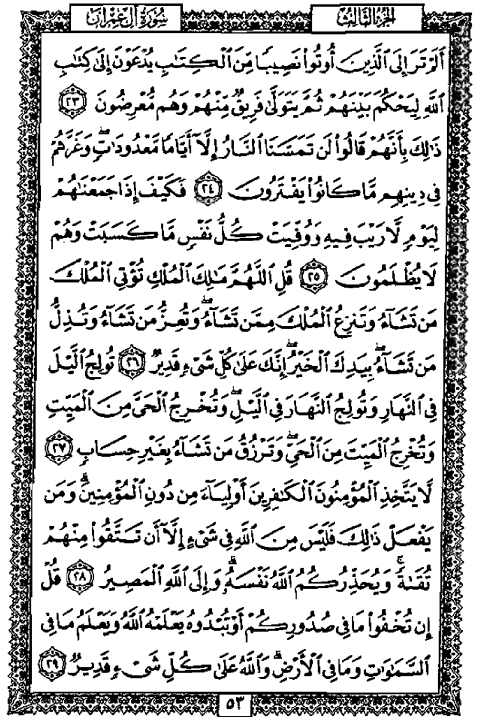 سُورَةُ آلِ عِمْرَانَ
الجُزْءُ الثَّالِثُ
أَلَمْ تَرَ إِلَى الَّذِينَ أُوتُوا نَصِيبًا مِّنَ الْكِتَابِ يُدْعَوْنَ إِلَىٰ كِتَابِ
اللَّهِ لِيَحْكُمَ بَيْنَهُمْ ثُمَّ يَتَوَلَّىٰ فَرِيقٌ مِّنْهُمْ وَهُم مُّعْرِضُونَ ٢٣
ذَٰلِكَ بِأَنَّهُمْ قَالُوا لَن تَمَسَّنَا النَّارُ إِلَّا أَيَّامًا مَّعْدُودَاتٍ ۖ وَغَرَّهُمْ
فِي دِينِهِم مَّا كَانُوا يَفْتَرُونَ ٢٤ فَكَيْفَ إِذَا جَمَعْنَاهُمْ
لِيَوْمٍ لَّا رَيْبَ فِيهِ وَوُفِّيَتْ كُلُّ نَفْسٍ مَّا كَسَبَتْ وَهُمْ
لَا يُظْلَمُونَ ٢٥ قُلِ اللَّهُمَّ مَالِكَ الْمُلْكِ تُؤْتِي الْمُلْكَ
مَن تَشَاءُ وَتَنزِعُ الْمُلْكَ مِمَّن تَشَاءُ وَتُعِزُّ مَن تَشَاءُ وَتُذِلُّ
مَن تَشَاءُ ۖ بِيَدِكَ الْخَيْرُ ۖ إِنَّكَ عَلَىٰ كُلِّ شَيْءٍ قَدِيرٌ ٢٦ تُولِجُ اللَّيْلَ
فِي النَّهَارِ وَتُولِجُ النَّهَارَ فِي اللَّيْلِ ۖ وَتُخْرِجُ الْحَيَّ مِنَ الْمَيِّتِ
وَتُخْرِجُ الْمَيِّتَ مِنَ الْحَيِّ ۖ وَتَرْزُقُ مَن تَشَاءُ بِغَيْرِ حِسَابٍ ٢٧
لَّا يَتَّخِذِ الْمُؤْمِنُونَ الْكَافِرِينَ أَوْلِيَاءَ مِن دُونِ الْمُؤْمِنِينَ ۖ وَمَن
يَفْعَلْ ذَٰلِكَ فَلَيْسَ مِنَ اللَّهِ فِي شَيْءٍ إِلَّا أَن تَتَّقُوا مِنْهُمْ
تُقَاةً ۗ وَيُحَذِّرُكُمُ اللَّهُ نَفْسَهُ ۗ وَإِلَى اللَّهِ الْمَصِيرُ ٢٨ قُلْ
إِن تُخْفُوا مَا فِي صُدُورِكُمْ أَوْ تُبْدُوهُ يَعْلَمْهُ اللَّهُ وَيَعْلَمُ مَا فِي
السَّمَاوَاتِ وَمَا فِي الْأَرْضِ ۗ وَاللَّهُ عَلَىٰ كُلِّ شَيْءٍ قَدِيرٌ ٢٩
٥٣